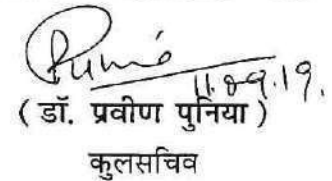 11.09.19.
( डॉ. प्रवीण पुनिया )
कुलसचिव